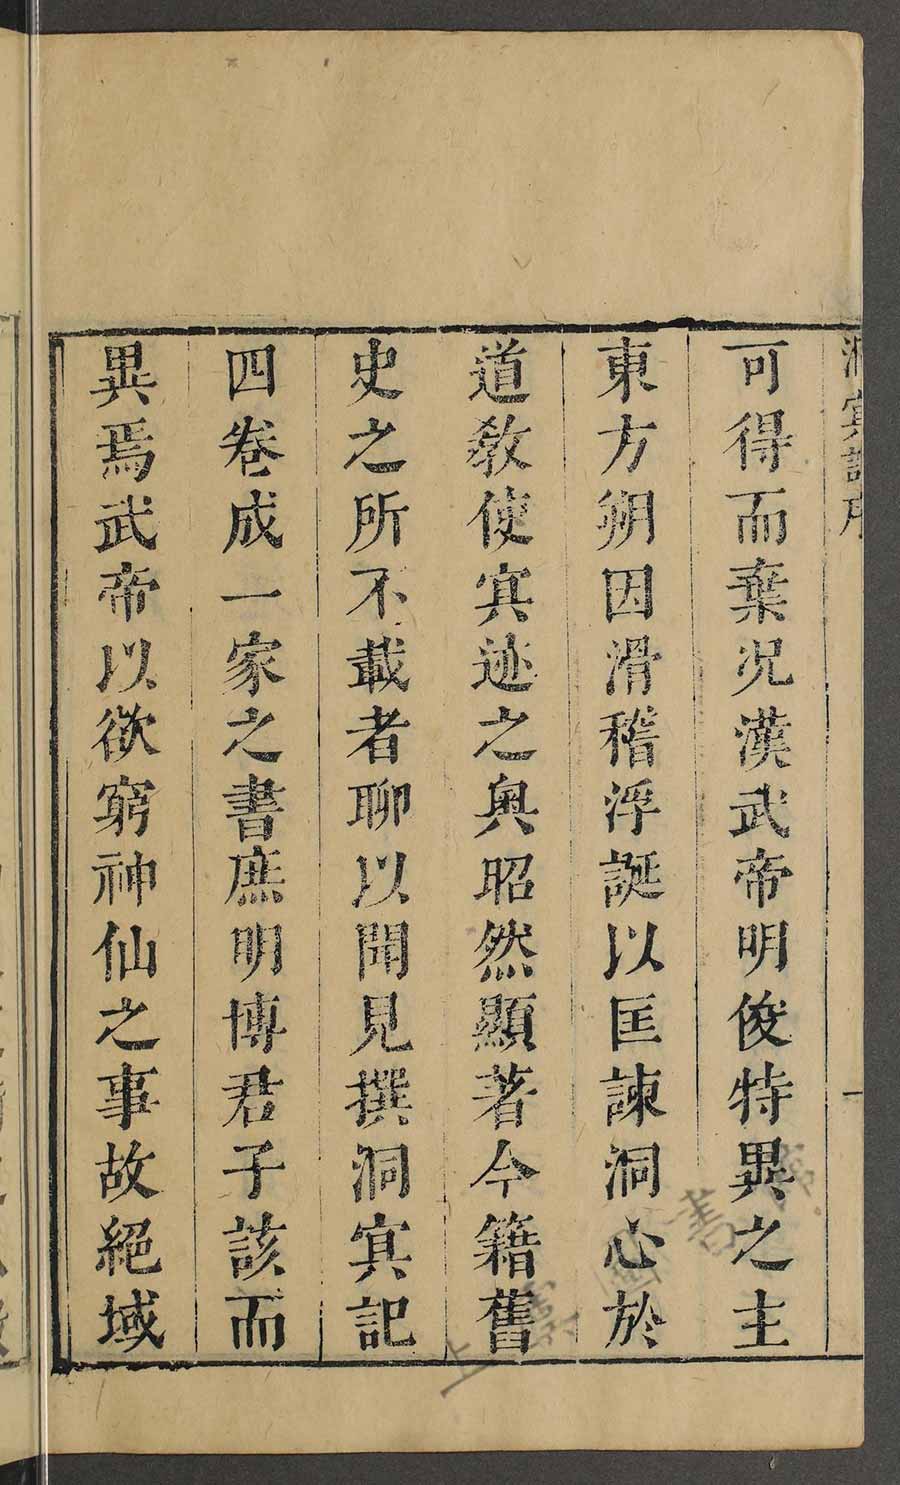 洞冥記序
一
可得而棄况漢武帝明俊特異之主
東方朔因滑稽浮誕以匡諫洞心於
道教使冥迹之奥昭然顯著今籍舊
史之所不載者聊以聞見撰洞冥記
四卷成一家之書庶明博君子該而
異焉武帝以欲窮神仙之事故絕域
上 圖書